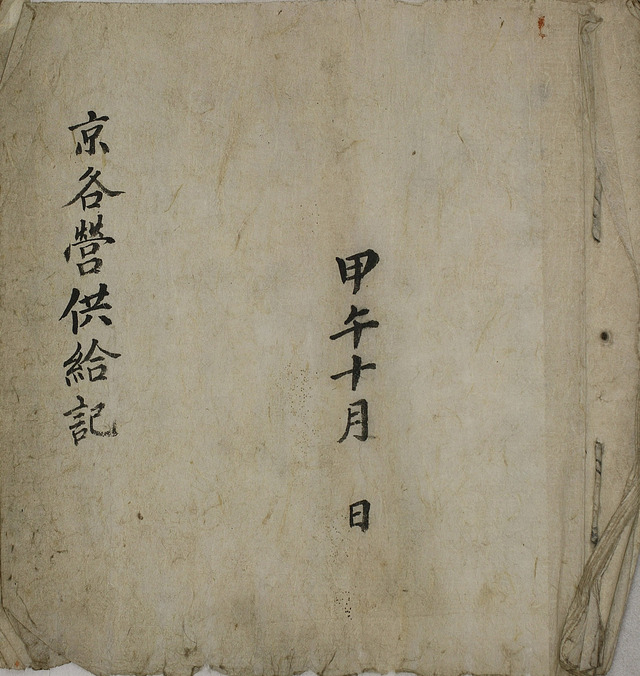 甲午十月 日
京各營供給記